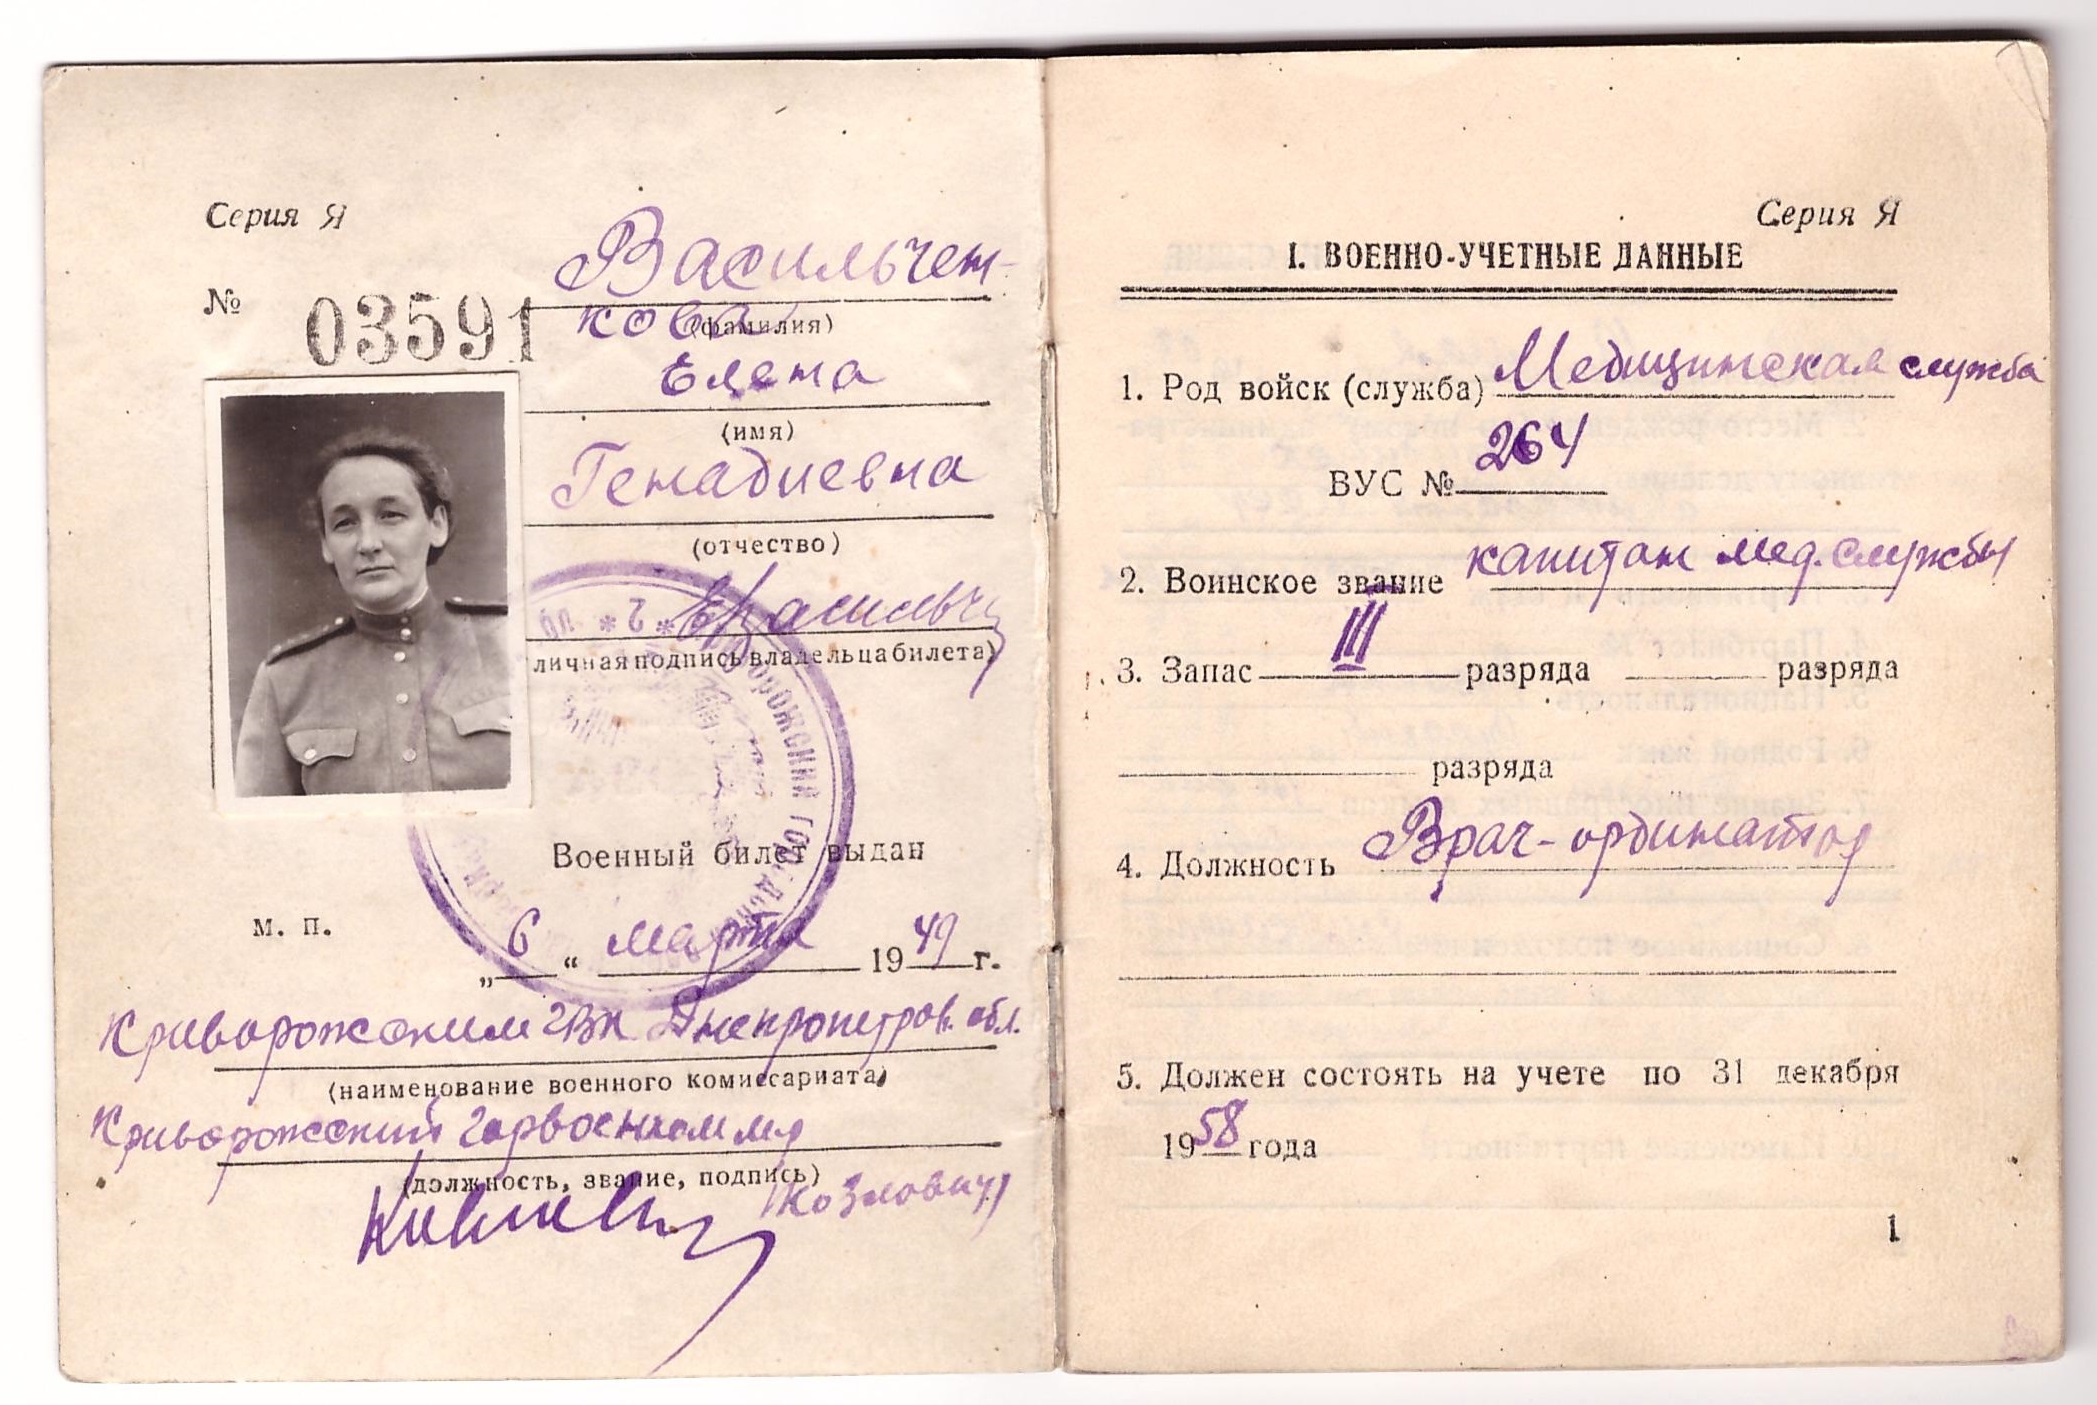 Серия Я
№ 03591
Васильчен-
кова
(фамилия)
Елена
(имя)
Генадиевна
(отчество)
ЕВасильч
личная подпись владельца билета)
Военный билет выдан
м. п.
„6“ марта 1949 г.
Криворожским ГВК Днепропетров. обл.
(наименование военного комиссариата)
Криворожский горвоенком
(должность, звание, подпись)
(Козлович)
Серия Я
I. ВОЕННО-УЧЕТНЫЕ ДАННЫЕ
1. Род войск (служба) Медицинская служба
ВУС № 264
2. Воинское звание капитан мед. службы
3. Запас III разряда разряда
разряда
4. Должность Врач-ординатор
5. Должен состоять на учете по 31 декабря
1958 года
1